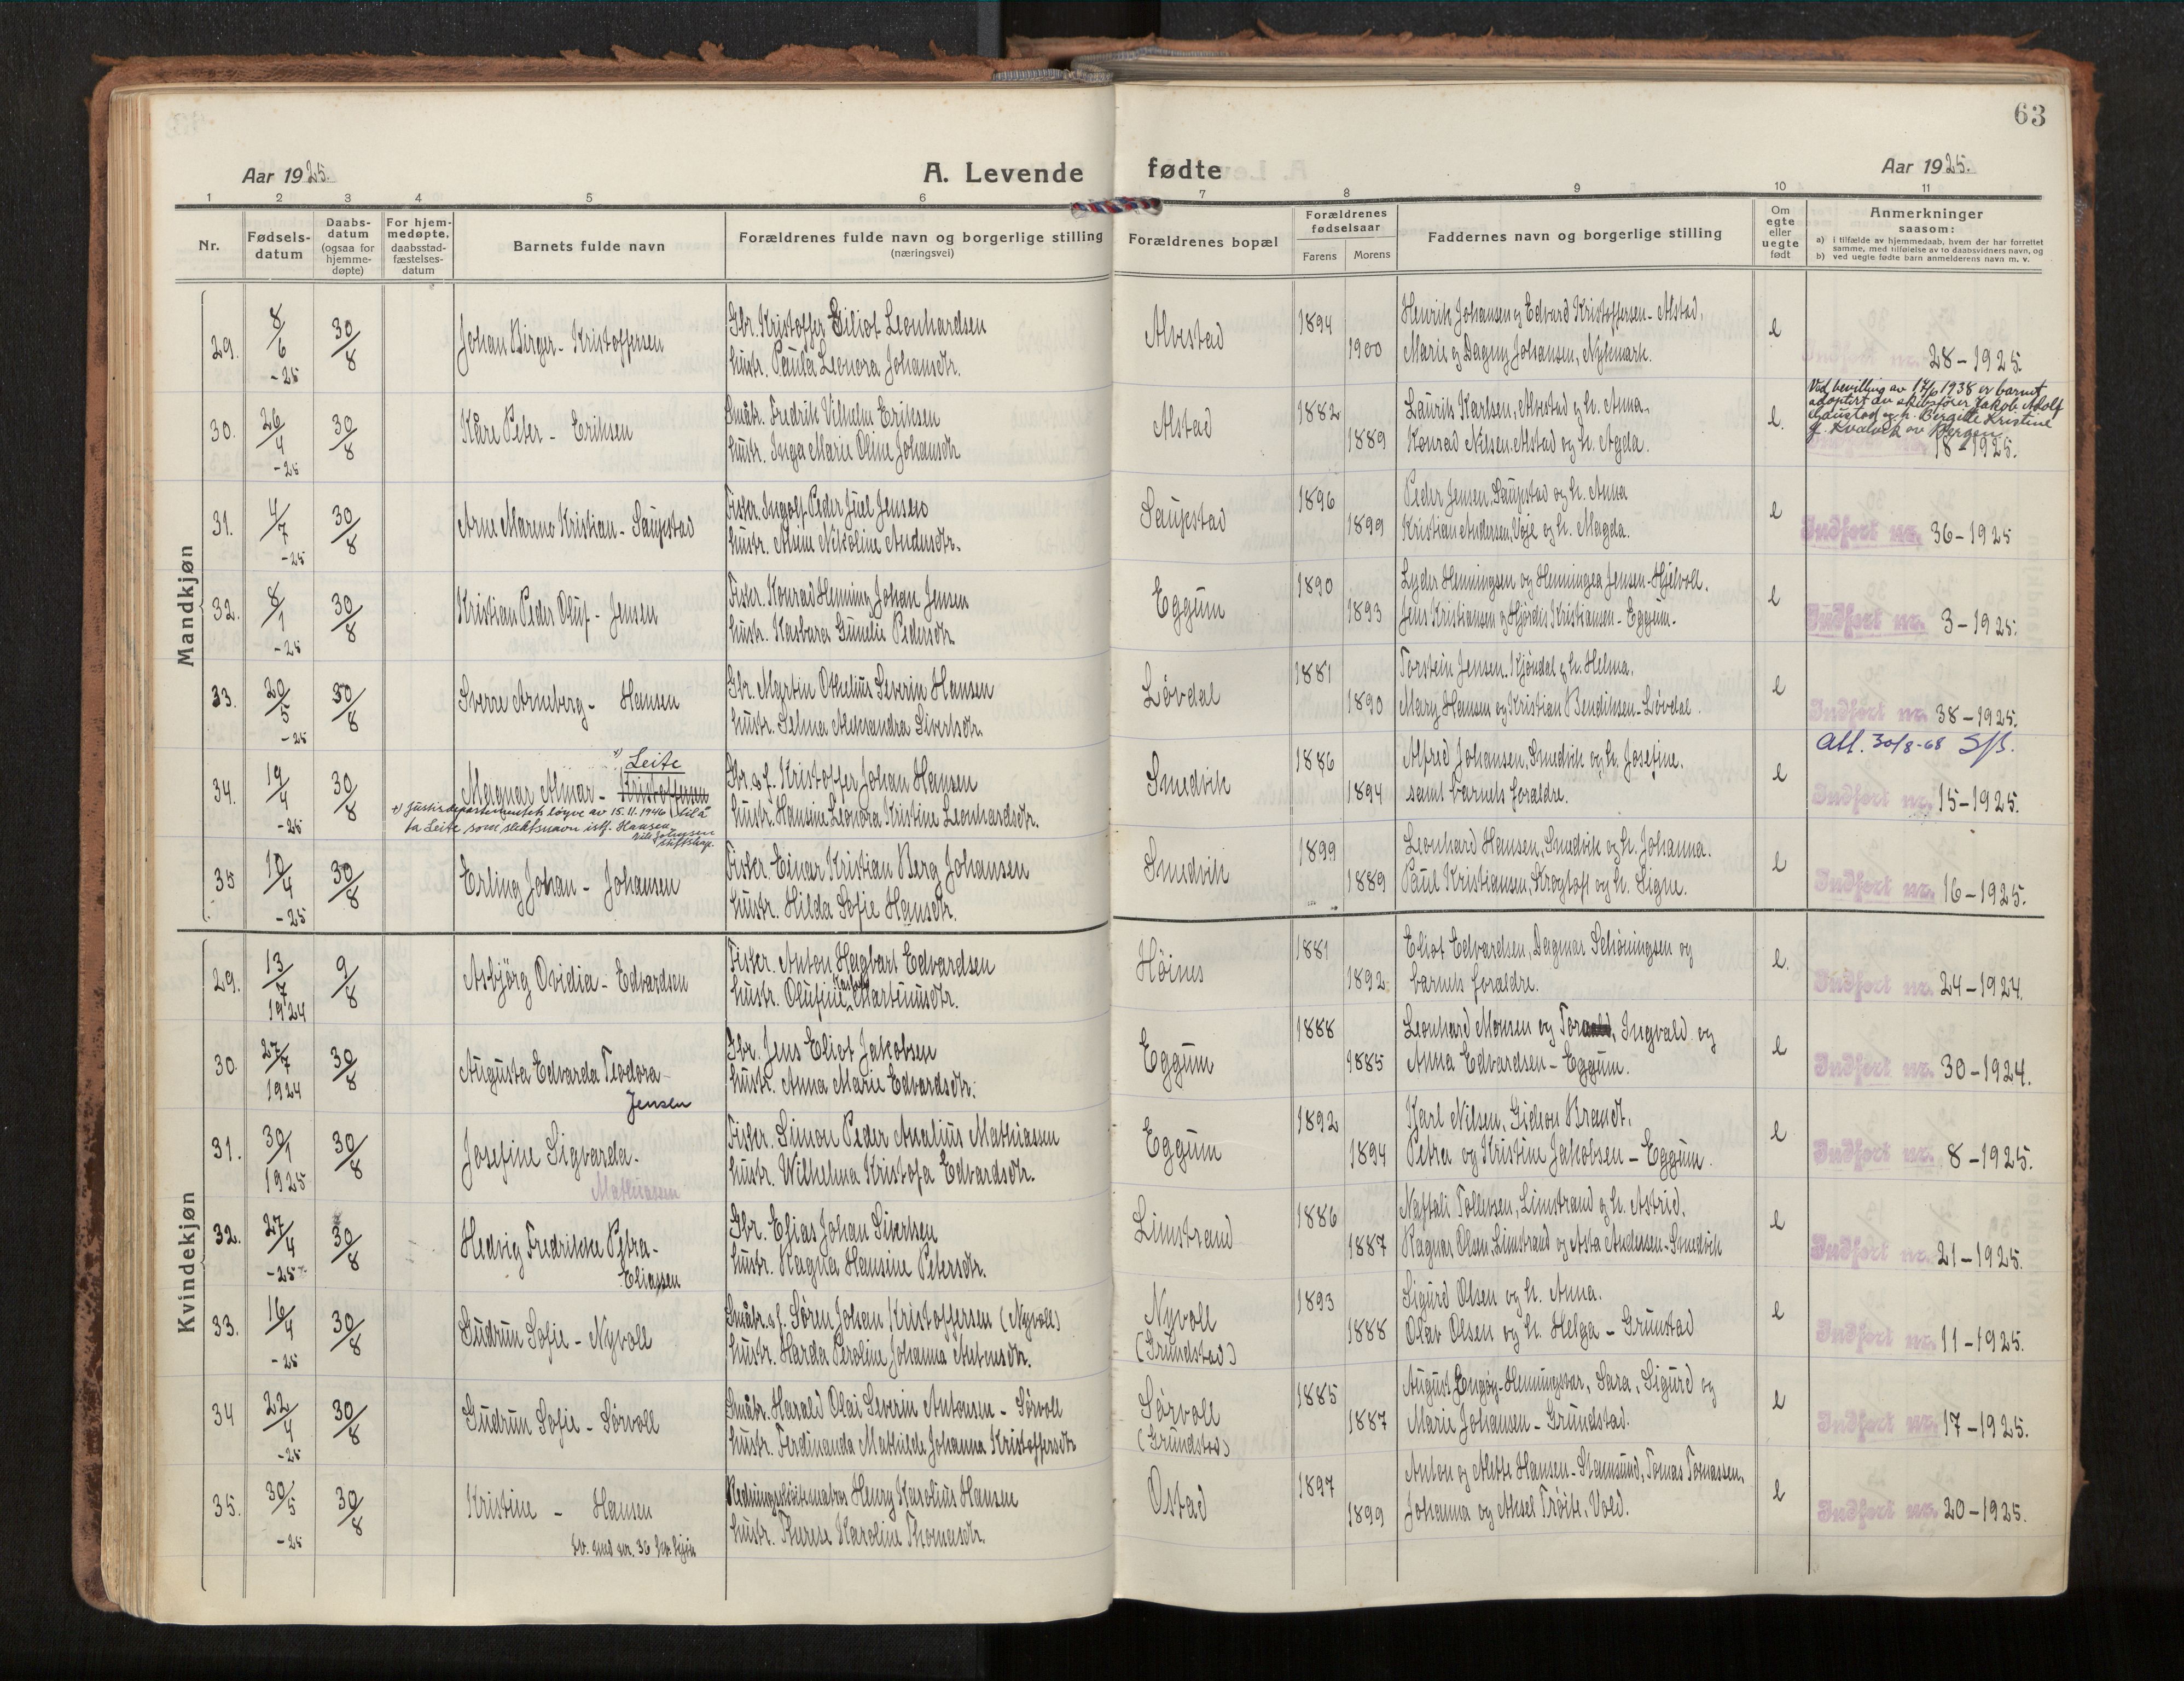 63
Aar 1925.
A. Levende fødte
Aar 1925.
1 2 3 4 5 6 7 8 9 10 11
Nr.
Fødsels-
datum
Daabs-
datum
(ogsaa for
hjemme-
døpte)
For hjem-
medøpte.
daabsstad-
fæstelses-
datum
Barnets fulde navn
Forældrenes fulde navn og borgerlige stilling
(næringsvei)
Forældrenes bopæl
Forældrenes
fødselsaar
Farens Morens
Faddernes navn og borgerlige stilling
Om
egte
eller
uegte
født
Anmerkninger
saasom:
a) i tilfælde av hjemmedaab, hvem der har forrettet
samme, med tilføielse av to daabsvidners navn, og
b) ved uegte fødte barn anmelderens navn m. v.
Mandkjøn
29. 8/6 -25 30/8 Johan Birger - Kristoffersen
Gbr. Kristoffer Eiliot Leonhardsen
hustr. Paula Leonora Johansdtr.
Alvstad 1894 1900
Henrik Johansen og Edvard Kristoffersen - Alstad,
Marie og Dagny Johansen, Nykmark.
e
28-1925.
30. 26/4 -25 30/8 Kåre Peter - Eriksen
Småbr. Fredrik Vilhelm Eriksen
hustr. Inga Marie Oline Johansdtr
Alstad 1882 1889
Laurits Karlsen, Alvstad og h. Anna.
Konrad Nilsen. Alstad og h. Agda.
e.
Ved bevilling av 1938 er barnet
adoptert av skibsfører Jakob Adolf
og h. Bergitte Kristine
f. av Bergen
18-1925.
31. 4/7 -25 30/8 Arne Mareno Kristian - Saupstad
Fisker. Ingolf Peder Juel Jensen
hustr. Nikoline Andersdtr.
Saupstad 1896 1899
Peder Jensen, Saupstad og h. Anna
Kristian Andersen, Voje og h. Magda.
e
Indført nr. 36-1925
32. 8/1 -25 30/8 Kristian Peder Oluf - Jensen
Fisker. Konrad Henning Johan Jensen
hustr. Kasbara Gunelie Pedersdtr
Eggum 1890 1893
Lyder Henningsen og Henningea Jensen - Hjelvoll.
Jens Kristiansen og Hjørdis Kristiansen - Eggum.
e
Indført nr. 3-1925.
33. 20/5 -25 30/8 Sverre Arneberg - Hansen
Gbr. Martin Othelius Severin Hansen
hustr. Selma Aleksandra Sivertsdtr.
Løvdal 1881 1890
Torstein Jensen. Kjøndal og h. Helma.
Mary Hansen og Kristian Bendiksen - Løvdal.
e
Indført nr. 38-1925.
34. 19/4 -25 30/8 x) Leite
Magnar Almar - Kristoffersen
x) Justisdepartementets løyve av 15.11.1946 til å
ta Leite som slektsnavn istf. Hansen
Gbr. s.f. Kristoffer Johan Hansen
hustr. Hansine Leonora Kristine Leonhardsdtr.
Smedvik 1886 1894
Alfred Johansen, Smedvik og h. Josefine.
samt barnets forældre.
e
Att. 30/8-68
Indført nr. 15-1925.
35 10/4 -25 30/8 Erling Johan - Johansen
Fisker. Einar Kristian Berg Johansen
hustr. Hilda Sofie Hansdtr.
Smedvik 1899 1889
Leonhard Hansen, Smedvik og h. Johanna.
Paul Kristiansen, Krogtoft og h. Signe.
e
Indført nr. 16-1925.
Kvindekjøn
29. 13/7 1924 9/8 Asbjörg Ovidia - Edvardsen
Fisker. Anton Hagbart Edvardsen
hustr. Olufine Martinusdtr.
Höines 1881 1892
Eliot Edvardsen, Dagmar Schöningsen og
barnets forældre.
e.
Indført nr. 24-1924.
30. 27/7 1924 30/8 Augusta Edvarda Teodora -
Jensen
Gbr. Jens Eliot Jakobsen
hustr. Anna Marie Edvardsdtr.
Eggum 1888 1885
Leonhard Monsen og Ingvald og
Anna Edvardsen - Eggum.
e
Indført nr. 30-1924.
31. 30/1 1925 30/8 Josefine Sigvarda.
Mathiassen
Fisker. Simon Peder Analius Mathiassen
hustr. Wilhelma Kristofa Edvardsdtr.
Eggum 1892 1894
Karl Nilsen, Gideon Brandt.
Petra og Kristine Jakobsen - Eggum.
e
Indført nr. 8-1925.
32. 27/4 -25 30/8 Hedvig Fredrikke Petra -
Eliassen
Gbr. Elias Johan Sivertsen
hustr. Ragna Hansine Petersdtr.
Limstrand 1886 1887
Naftali Tollefsen, Limstrand og h. Astrid.
Ragnar Olsen, Limstrand og Asta Andersen - Smedvik
e
Indført nr. 21-1925.
33. 16/4 -25 30/8 Gudrun Sofie - Nyvoll
Småbr. s.f. Søren Johan Kristoffersen (Nyvoll)
hustr. Harda Peroline Johanna Antonsdtr.
Nyvoll
(Grundstad)
1893 1888
Sigurd Olsen og h. Anna.
Olav Olsen og h. Helga - Grunstad
e
Indført nr. 11-1925.
34 22/4 -25 30/8 Gudrun Sofie - Sørvoll
Småbr. Harald Olai Severin Antonsen - Sörvoll
hustr. Ferdinanda Mathilde Johanna Kristoffersdtr
Sørvoll
(Grundstad)
1885 1887
August Engøy - Henningsvær, Sara, Sigurd og
Marie Johansen - Grundstad.
e
Indført nr. 17-1925.
35. 30/5 -25 30/8 Kristine - Hansen
Redningsskøitematros Henry Karolius Hansen
hustr. Therese Karoline Thomasdtr.
Ostad 1897 1899
Anton og Alette Hansen - Stamsund, Tomas Tomassen,
Johanna og Aksel Trøite, Vold.
e
Indført nr. 20-1925.